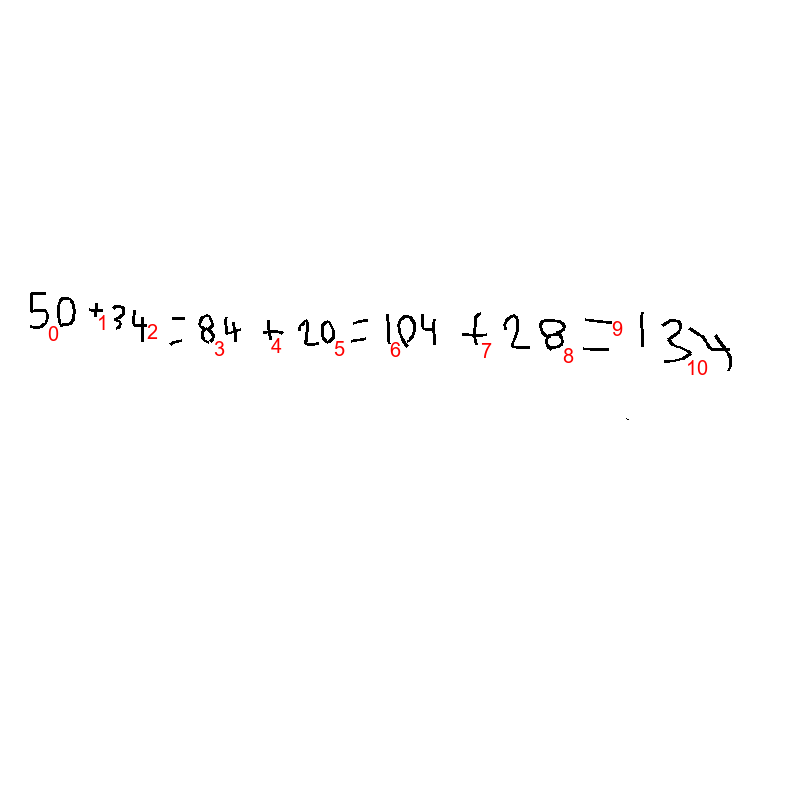 50 + 34 = 84 + 20 = 104 + 28 = 134
0 1 2 3 4 5 6 7 8 9 10